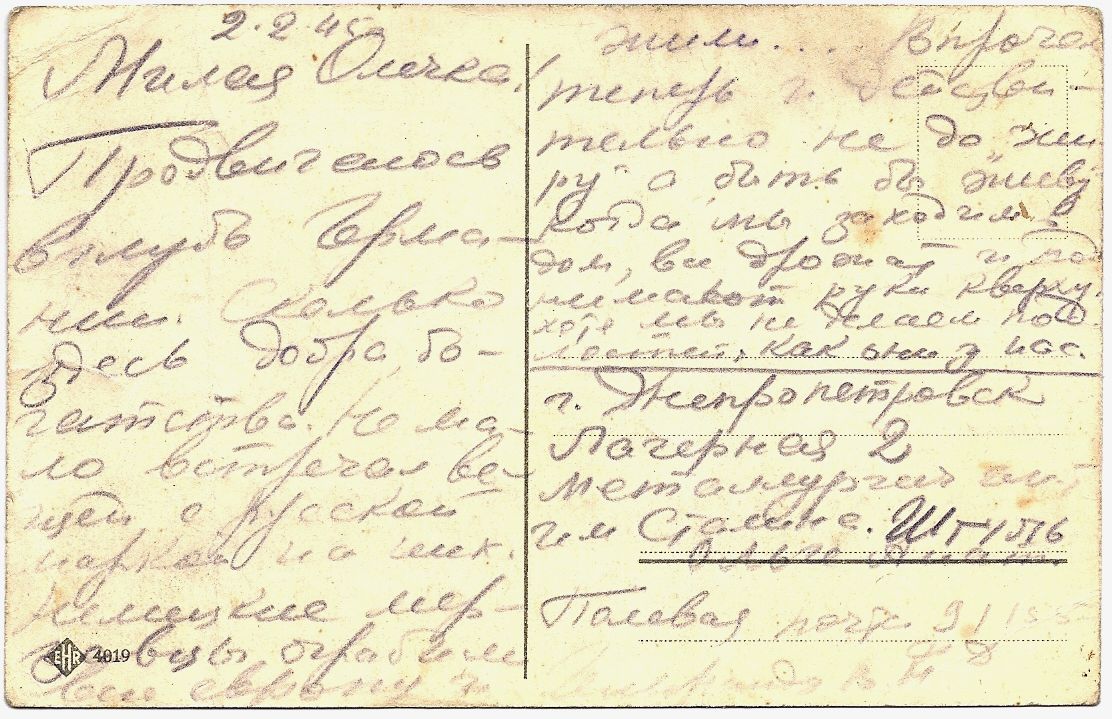 2.2.45
Милая Олечка!
Продвигаюсь
вглубь Герма-
нии. Сколько
здесь добра, бо-
гатства. Не ма-
ло встречал ве-
щей с русской
маркой на них.
Немецкие мер-
завцы ограбили
всю европу и
EHR 4019
жили... Впрочем
теперь и действи-
тельно не до „жи-
ру" а быть бы живу
когда мы заходим в
дом, все дрожат и под
нимают руки кверху,
хотя мы не делаем под
лостей, как они у нас.
г. Днепропетровск
Лагерная 2
Металлургич инт
им Сталина. Штуль
Ольге
Полевая почта